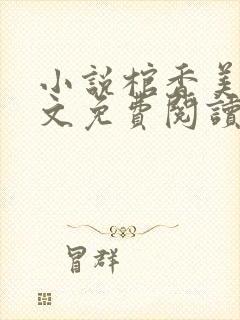 小說棺香美
文免費閱讀
冒群